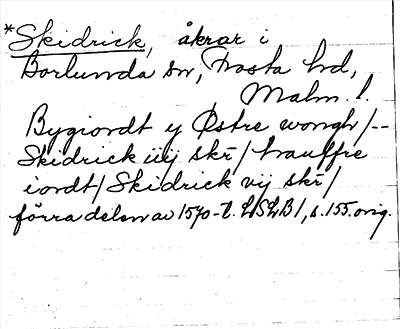 *Skidrick, åkrar i
Borlunda sn, Frosta hd,
Malm. l.
Bygiordt y Østre wongh/--
Skidrick iiij skr/hauffre
iordt/Skidrick vij skr/
förra delen av 1570-t. LSLB1, s. 155. orig.